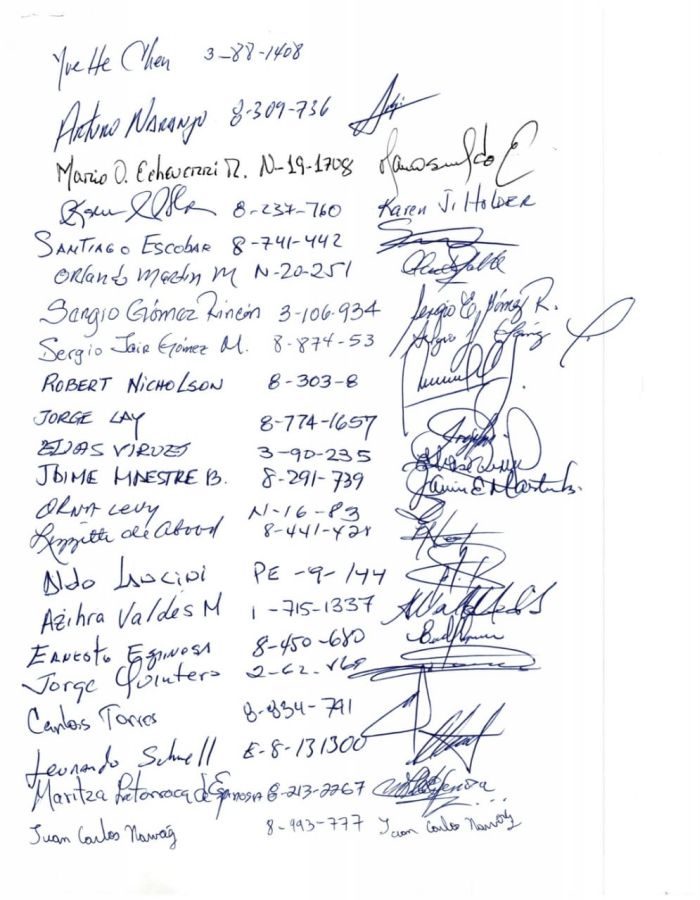 Yvette Chen 3-88-1408
Arturo Naranjo 8-309-736
Mario O. Echeverri R. N-19-1708
8-237-760 Karen J. Holder
Santiago Escobar 8-741-442
Orlando Martin M N-20-251
Sergio Gómez Rincón 3-106-934 Sergio E. Gómez R.
Sergio Jair Gómez M. 8-874-53
Robert Nicholson 8-303-8
Jorge Lay 8-774-1657
Elias Virues 3-90-235
Jaime Maestre B. 8-291-739
Orna Levy N-16-83
de Abood 8-441-428
Aldo PE-9-144
Azihra Valdés M 1-715-1337
Ernesto Espinosa 8-450-680
Jorge Quintero 2-62-
Carlos Torres 8-834-791
Schnell E-8-131300
Maritza de Espinosa 8-213-2267
Juan Carlos 8-993-777 Juan Carlos